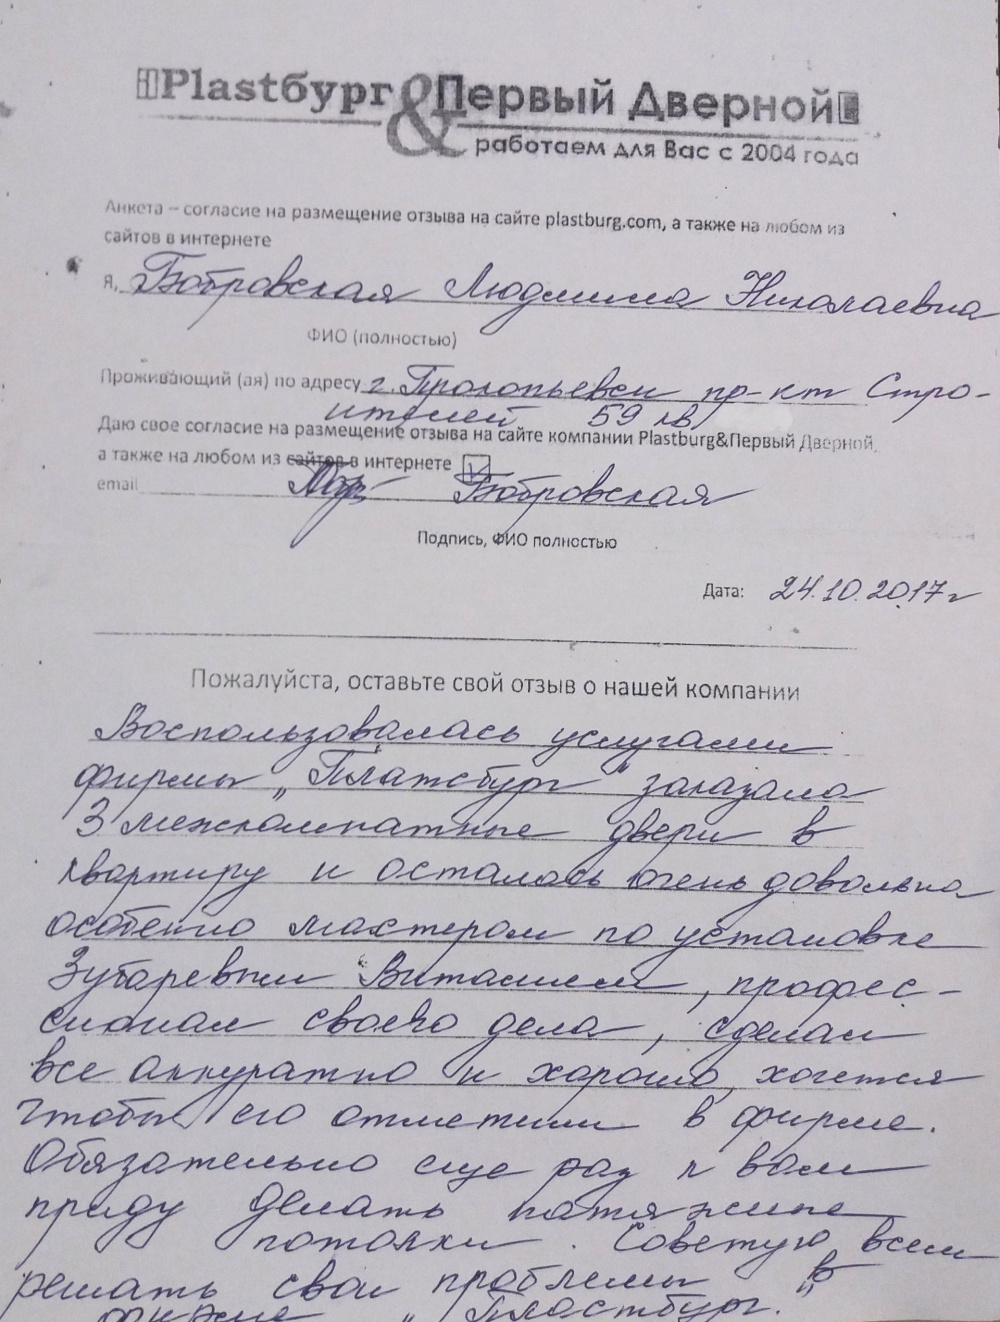 Plastбург & Первый Дверной
работаем для Вас с 2004 года
Анкета – согласие на размещение отзыва на сайте plastburg.com, а также на любом из
сайтов в интернете
Я, Бобровская Людмила Николаевна
ФИО (полностью)
Проживающий (ая) по адресу г. Прокопьевск пр-кт Стро-
ителей 59 кв
Даю свое согласие на размещение отзыва на сайте компании Plastburg&Первый Дверной,
а также на любом из сайтов в интернете
email Бобровская
Подпись, ФИО полностью
Дата: 24.10.2017г
Пожалуйста, оставьте свой отзыв о нашей компании
Воспользовалась услугами
фирмы „Платсбург" заказала
3 межкомнатные двери в
квартиру и осталась очень довольна
особенно мастером по установке
Зубаревым Виталием, профес-
сионал своего дела, сделал
все аккуратно и хорошо, хочется
чтобы его отметили в фирме.
Обязательно еще раз к вам
приду делать натяжные
потолки. Советую всем
решать свои проблемы в
фирме „Пластбург."